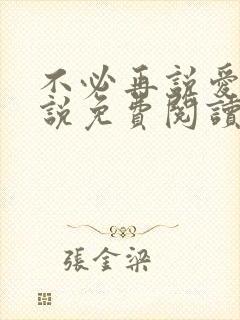 不必再說愛
說免費閱讀
張金梁